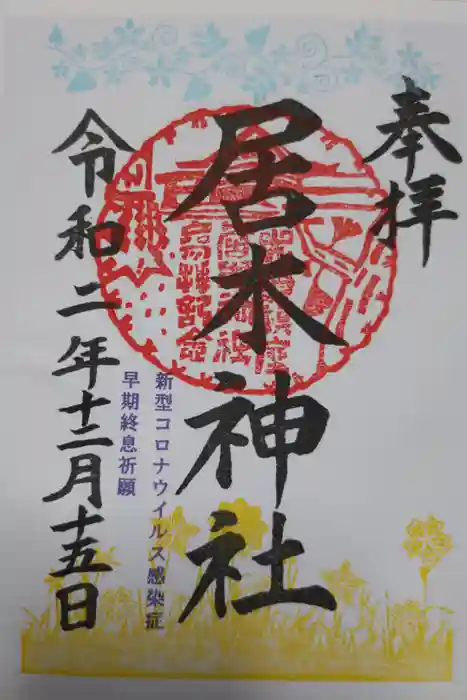 奉拝
居木神社
新型コロナウイルス感染症
早期終息祈願
令和二年十二月十五日